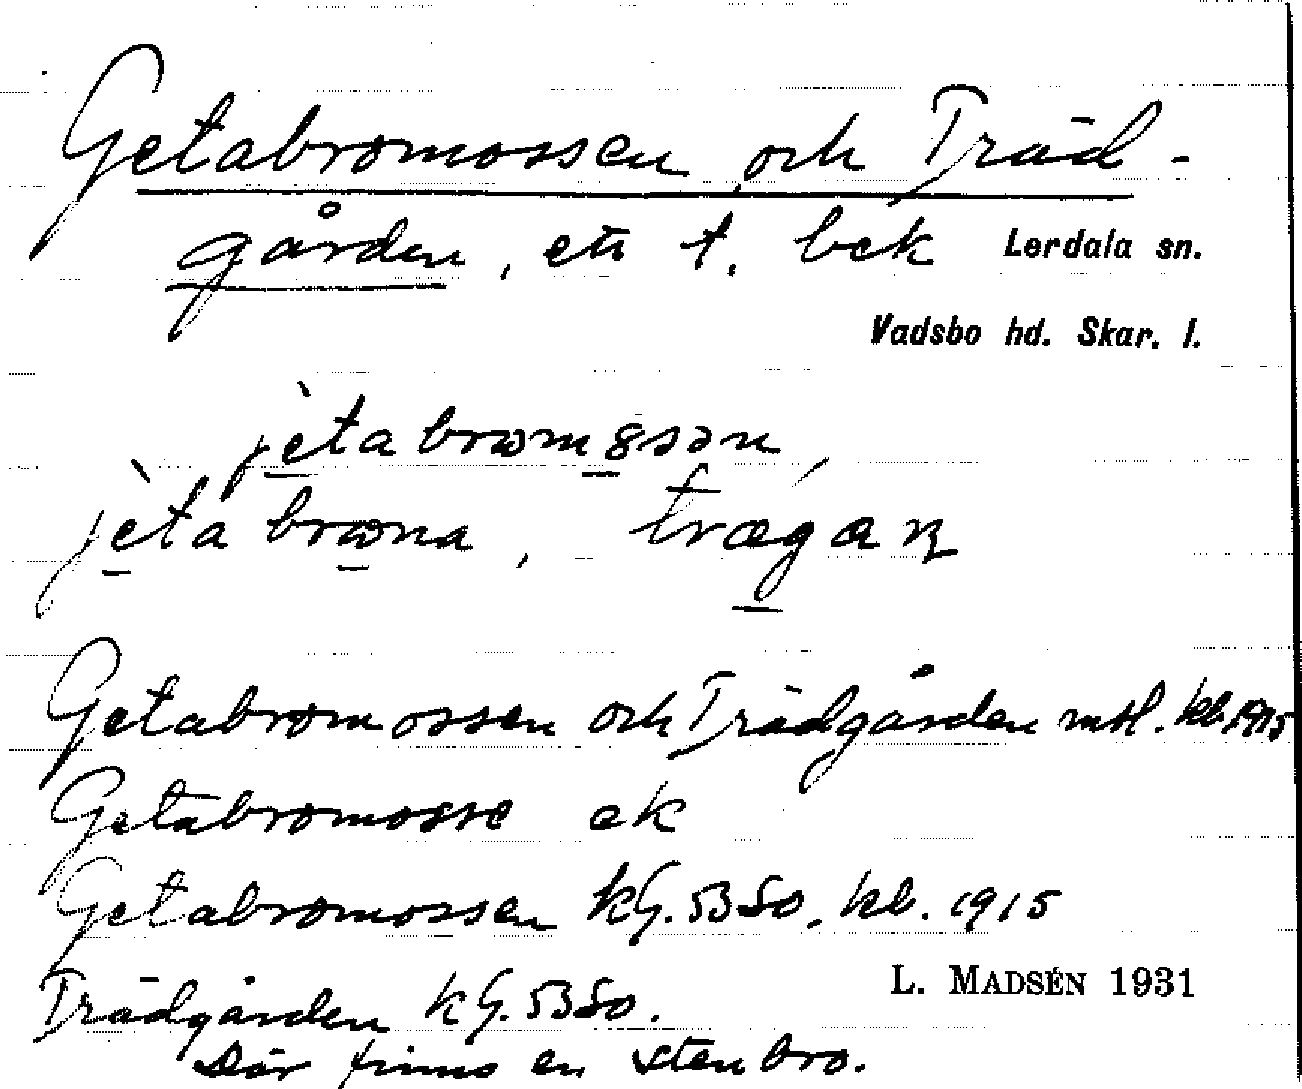 Getabromossen och Träd-
gården, ett t. bek Lerdala sn.
Vadsbo hd. Skar. l.
jètabromossən,
jèta brona, trægaɳ
Getabromossen och Trädgården mtl. kb. 1915
Getabromosse ek
Getabromossen kG. 53 So. kb. 1915
Trädgården kG. 53 So.
L. MADSÉN 1931
Där finns en stenbro.